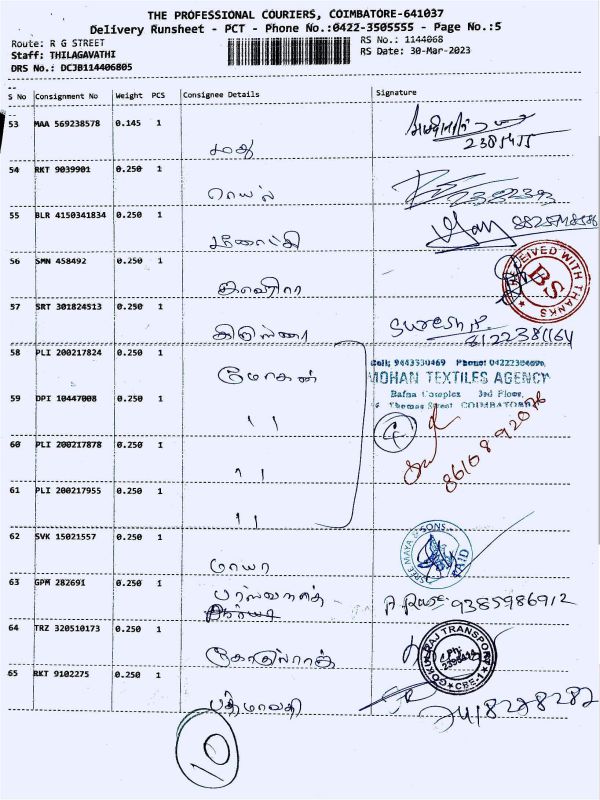 THE PROFESSIONAL COURIERS, COIMBATORE-641037
Delivery Runsheet - PCT - Phone No.:0422-3505555 - Page No.:5
Route: R G STREET
RS No.: 1144068
Staff: THILAGAVATHI
RS Date: 30-Mar-2023
DRS No.: DCJB114406805
S No Consignment No Weight PCS Consignee Details Signature
53 MAA 569238578 0.145 1
மது
2385455
54 RKT 9039901 0.250 1
ராயல்
2382393
55 BLR 4150341834 0.250 1
மீனாட்சி
56 SMN 458492 0.250 1
காவேரி
RECEIVED WITH THANKS
BS
57 SRT 301824513 0.250 1
கிருஷ்ணா
Suresh
8122381164
58 PLI 200217824 0.250 1
மோகன்
Cell: 9443330469 Phone: 04222304690,
MOHAN TEXTILES AGENCY
Bafna Complex 3rd Floor,
Thomas Street COIMBATORE
59 DPI 10447008 0.250 1
11
4
60 PLI 200217878 0.250 1
11
61 PLI 200217955 0.250 1
11
62 SVK 15021557 0.250 1
மாயா
SREE MAYA & SONS
PAID
63 GPM 282691 0.250 1
பார்ஸ்வநாத்
9385986912
64 TRZ 320510173 0.250 1
கோகுல்ராஜ்
GOKUL RAJ TRANSPORT
CBE-1
65 RKT 9102275 0.250 1
பத்மாவதி
10